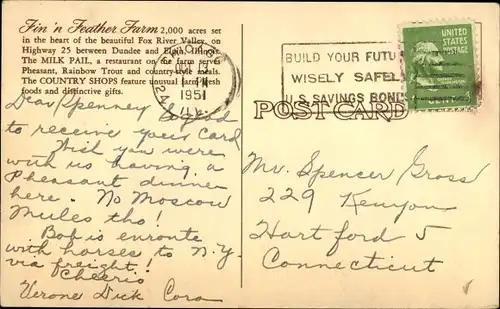 Fin 'n Feather Farm 2,000 acres set
in the heart of the beautiful Fox River Valley, on
Highway 25 between Dundee and Elgin, Illinois.
The MILK PAIL, a restaurant on the farm serves
Pheasant, Rainbow Trout and country-style meals.
The COUNTRY SHOPS feature unusual farm-fresh
foods and distinctive gifts.
OCT 13
PM
1951
ILL
BUILD YOUR FUTU
WISELY SAFEL
U.S. SAVINGS BOND
UNITED
STATES
POSTAGE
POST CARD
Dear Spenney
to receive your card
Wish you were
with us having a
Pheasant dinner
here. No Moscow
Mules tho!
Bob is enroute
with horses to N.Y.
via freight!
Cheerio
Verone Dick Cora
Mr. Spencer Gross
229 Kenyon
Hartford 5
Connecticut